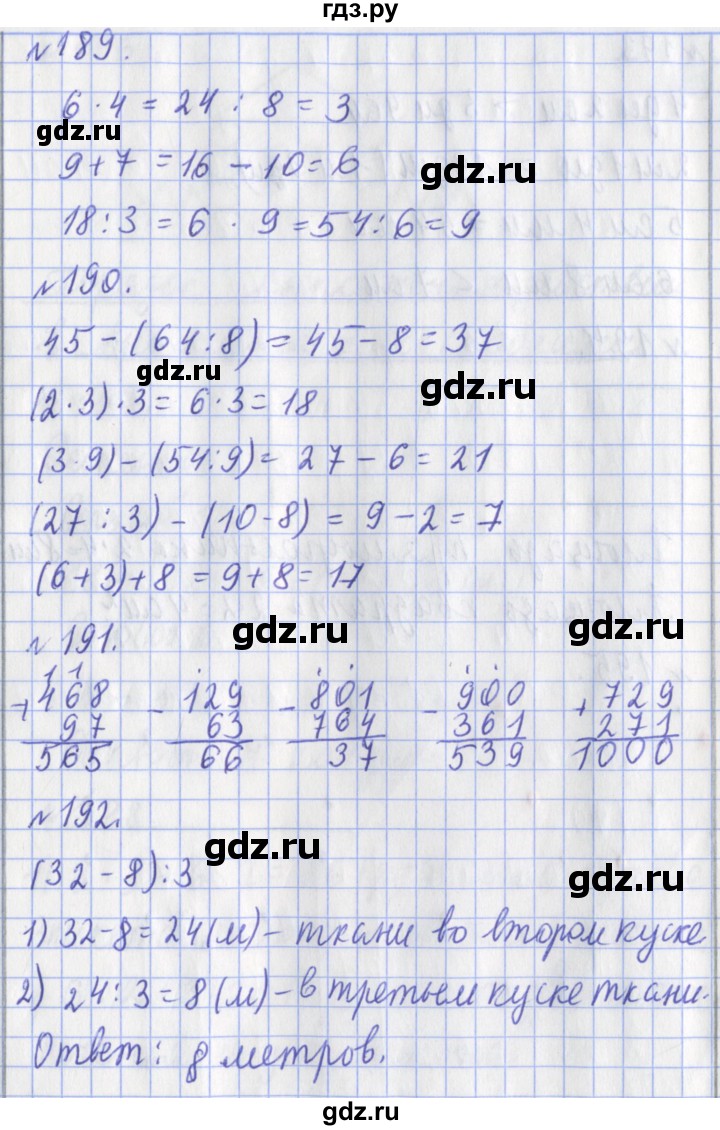 гдз.ру
№189.
6 · 4 = 24 : 8 = 3
gdz.ru
9 + 7 = 16 - 10 = 6
gdz.ru
18 : 3 = 6 · 9 = 54 : 6 = 9
№190.
45 - (64 : 8) = 45 - 8 = 37
gdz.ru
gdz.ru
(2 · 3) · 3 = 6 · 3 = 18
(3 · 9) - (54 : 9) = 27 - 6 = 21
(27 : 3) - (10 - 8) = 9 - 2 = 7
(6 + 3) + 8 = 9 + 8 = 17
№191.
gdz.ru
gdz.ru
1 1
+ 468 - 129 - 801 - 900 + 729
97 63 764 361 271
565 66 37 539 1000
№192.
gdz.ru
(32 - 8) : 3
gdz.ru
1) 32 - 8 = 24 (м) - ткани во втором куске
2) 24 : 3 = 8 (м) - в третьем куске ткани.
Ответ: 8 метров.
gdz.ru